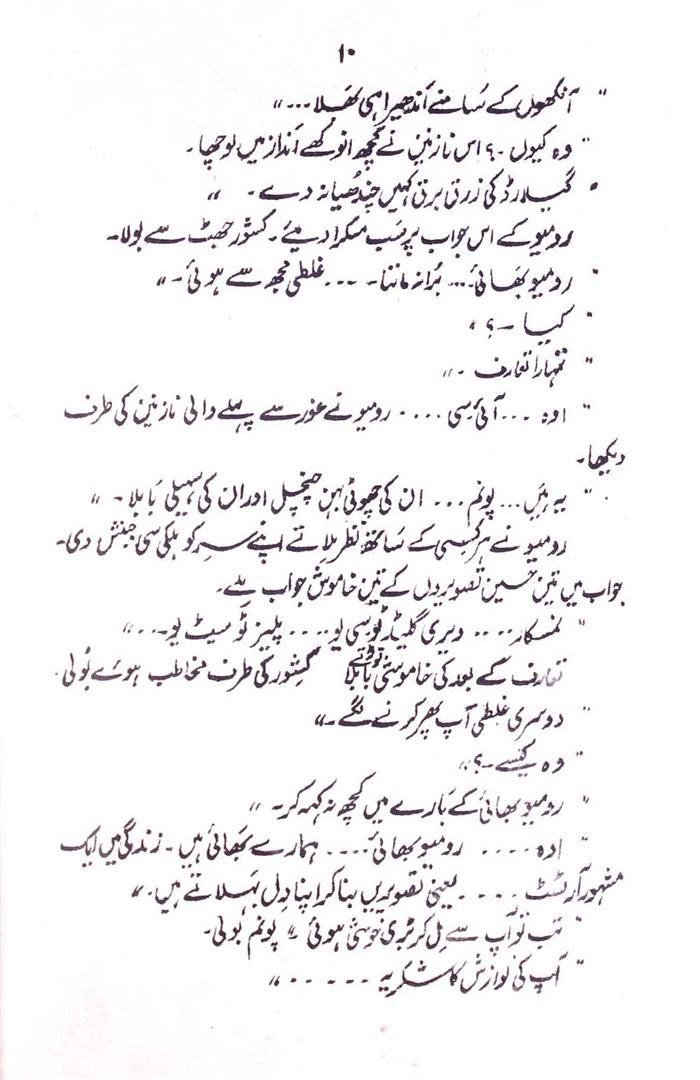 ۱۰
" آنکھوں کے سامنے اندھیرا ہی بھلا ... "
" وہ کیوں ۔؟ اس نازنین نے کچھ انوکھے انداز میں پوچھا ۔
" گیبارڈ کی زرق برق کہیں چندھیا نہ دے ۔ "
رومیو کے اس جواب پر سب مسکرا دیئے ۔ کشور جھٹ سے بولا۔
" رومیو بھائی ... بُرا نہ ماننا ۔ ... غلطی مجھ سے ہوئی ۔ "
" کیا ۔؟ "
" تمہارا تعارف ۔ "
" اوہ ... آئی سی .... رومیو نے غور سے پہلے والی نازنین کی طرف
دیکھا۔
" یہ ہیں ... پونم ... ان کی چھوٹی بہن چنچل اور ان کی سہیلی بابلا ۔ "
رومیو نے ہر کسی کے ساتھ نظر ملاتے اپنے سر کو ہلکی سی جنبش دی۔
جواب میں تین حسین تصویروں کے تین خاموش جواب ملے۔
" نمسکار .... ویری گلیڈ ٹو سی یو .... پلیز ٹو میٹ یو .... "
تعارف کے بعد کی خاموشی توڑتے بابلا کشور کی طرف مخاطب ہوئے بولی۔
" دوسری غلطی آپ پھر کرنے لگے ۔ "
" وہ کیسے ۔؟ "
" رومیو بھائی کے بارے میں کچھ نہ کہہ کر ۔ "
" اوہ .... رومیو بھائی .... ہمارے بھائی ہیں ۔ زندگی میں ایک
مشہور آرٹسٹ .... یعنی تصویریں بنا کر اپنا دل بہلاتے ہیں ۔ "
" تب تو آپ سے مل کر بڑی خوشی ہوئی " پونم بولی۔
" آپ کی نوازش کا شکریہ ..... "